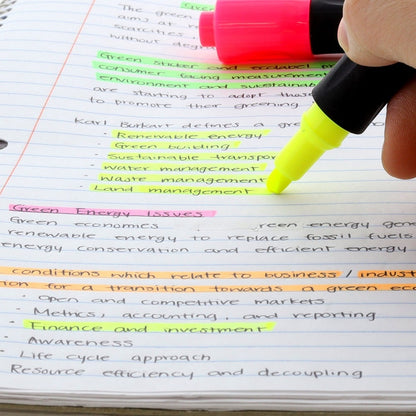 The green
aims at r
scarcities
without deg
Green Sticker and ecolabel pr
consumer facing measurement
environment and sustainab
are starting to adopt thos
to promote their greening
Karl Burkart defines a gr
· Renewable energy
· Green building
· Sustainable transpor
· Water management
· Waste management
· Land management
Green Energy Issues
Green economies reen energy gen
renewable energy to replace fossil fuels
energy conservation and efficient energy
conditions which relate to business / indust
on for a transition towards a green eco
· Open and competitive markets
· Metrics, accounting, and reporting
· Finance and investment
· Awareness
· Life cycle approach
Resource efficiency and decoupling